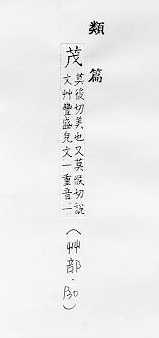 類篇
茂
莫後切美也又莫候切說
文艸豐盛皃文一重音一
(艸部.P30)